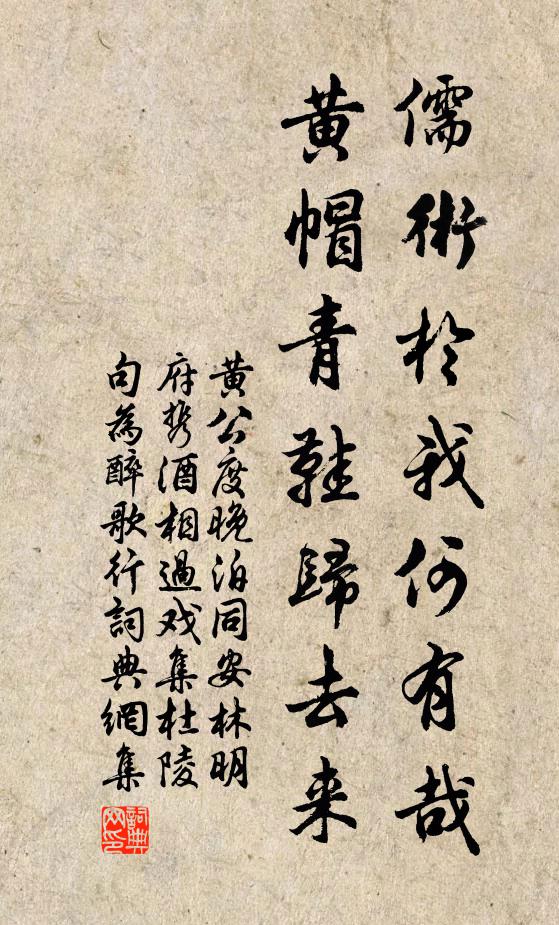 儒術於我何有哉
黃帽青鞵歸去来
黃公度晚泊同安林明
府携酒相過戏集杜陵
句為醉歌行詞典網集
詞典网印